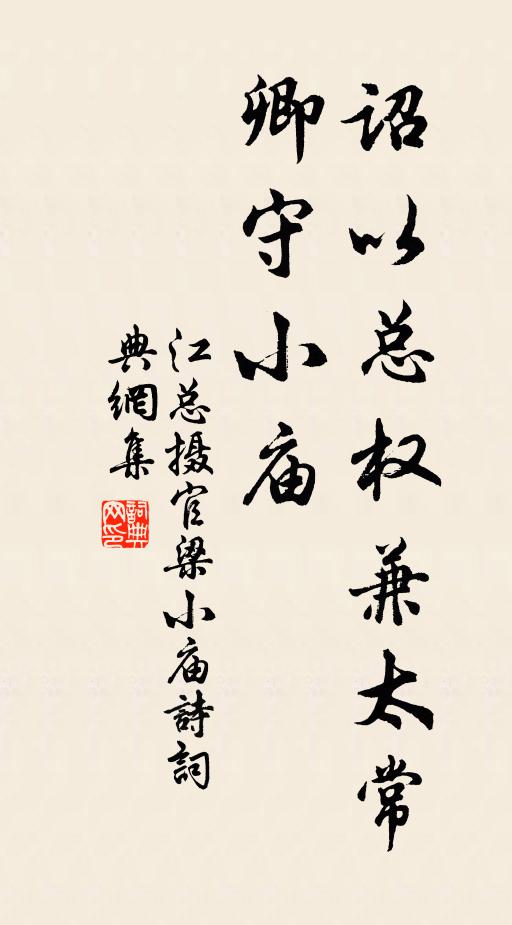 诏以总权兼太常
卿守小庙
江总摄官梁小庙詩詞
典網集
詞典网印